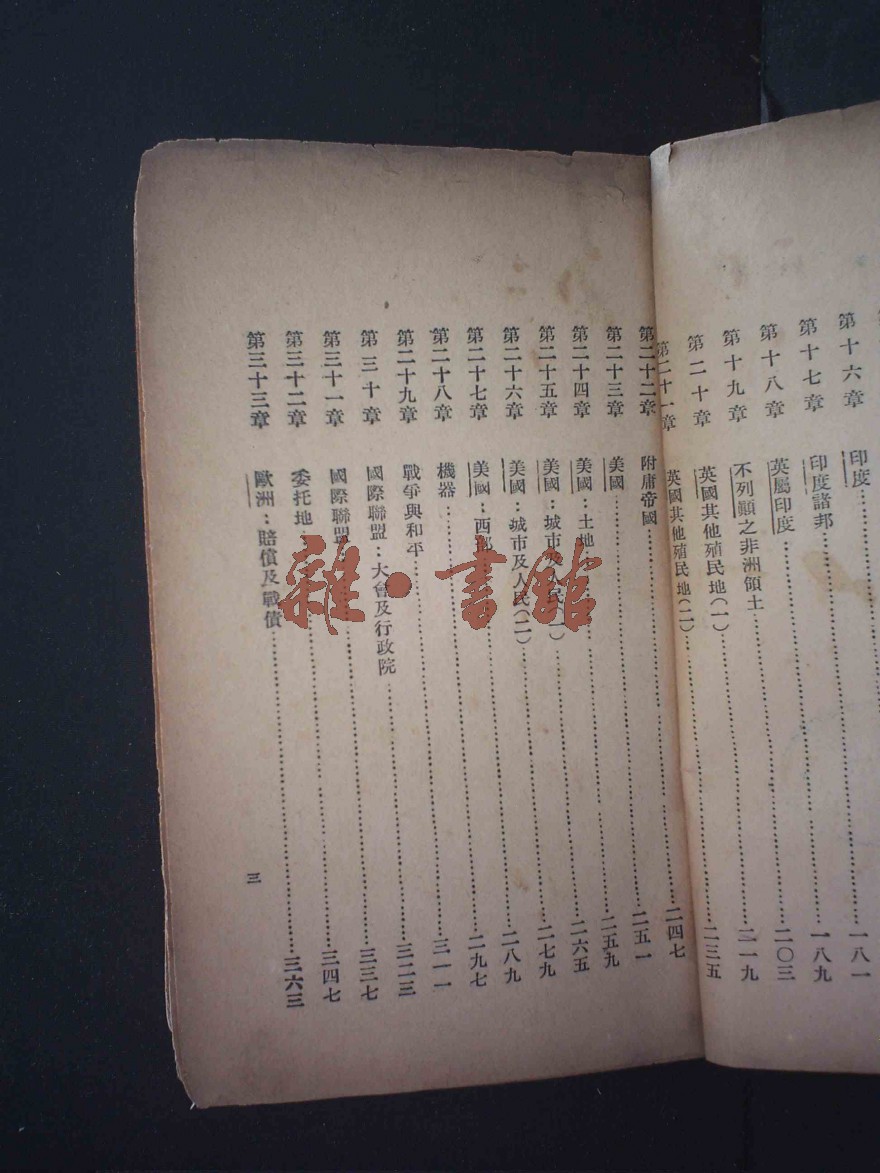 第十六章 印度
第十七章 印度諸邦 一八一
第十八章 英屬印度 一八九
第十九章 不列顛之非洲領土 二〇三
第二十章 英國其他殖民地(一) 二一九
第二十一章 英國其他殖民地(二) 二三五
第二十二章 附庸帝國 二四七
第二十三章 美國 二五一
第二十四章 美國:土地 二五九
第二十五章 美國:城市及人民(一) 二六五
第二十六章 美國:城市及人民(二) 二七九
第二十七章 美國:西部 二八九
第二十八章 機器 二九七
第二十九章 戰爭與和平 三一一
第三十章 國際聯盟:大會及行政院 三二三
第三十一章 國際聯盟 三三七
第三十二章 委托地 三四七
第三十三章 歐洲:賠償及戰債 三六三
三
雜·書館